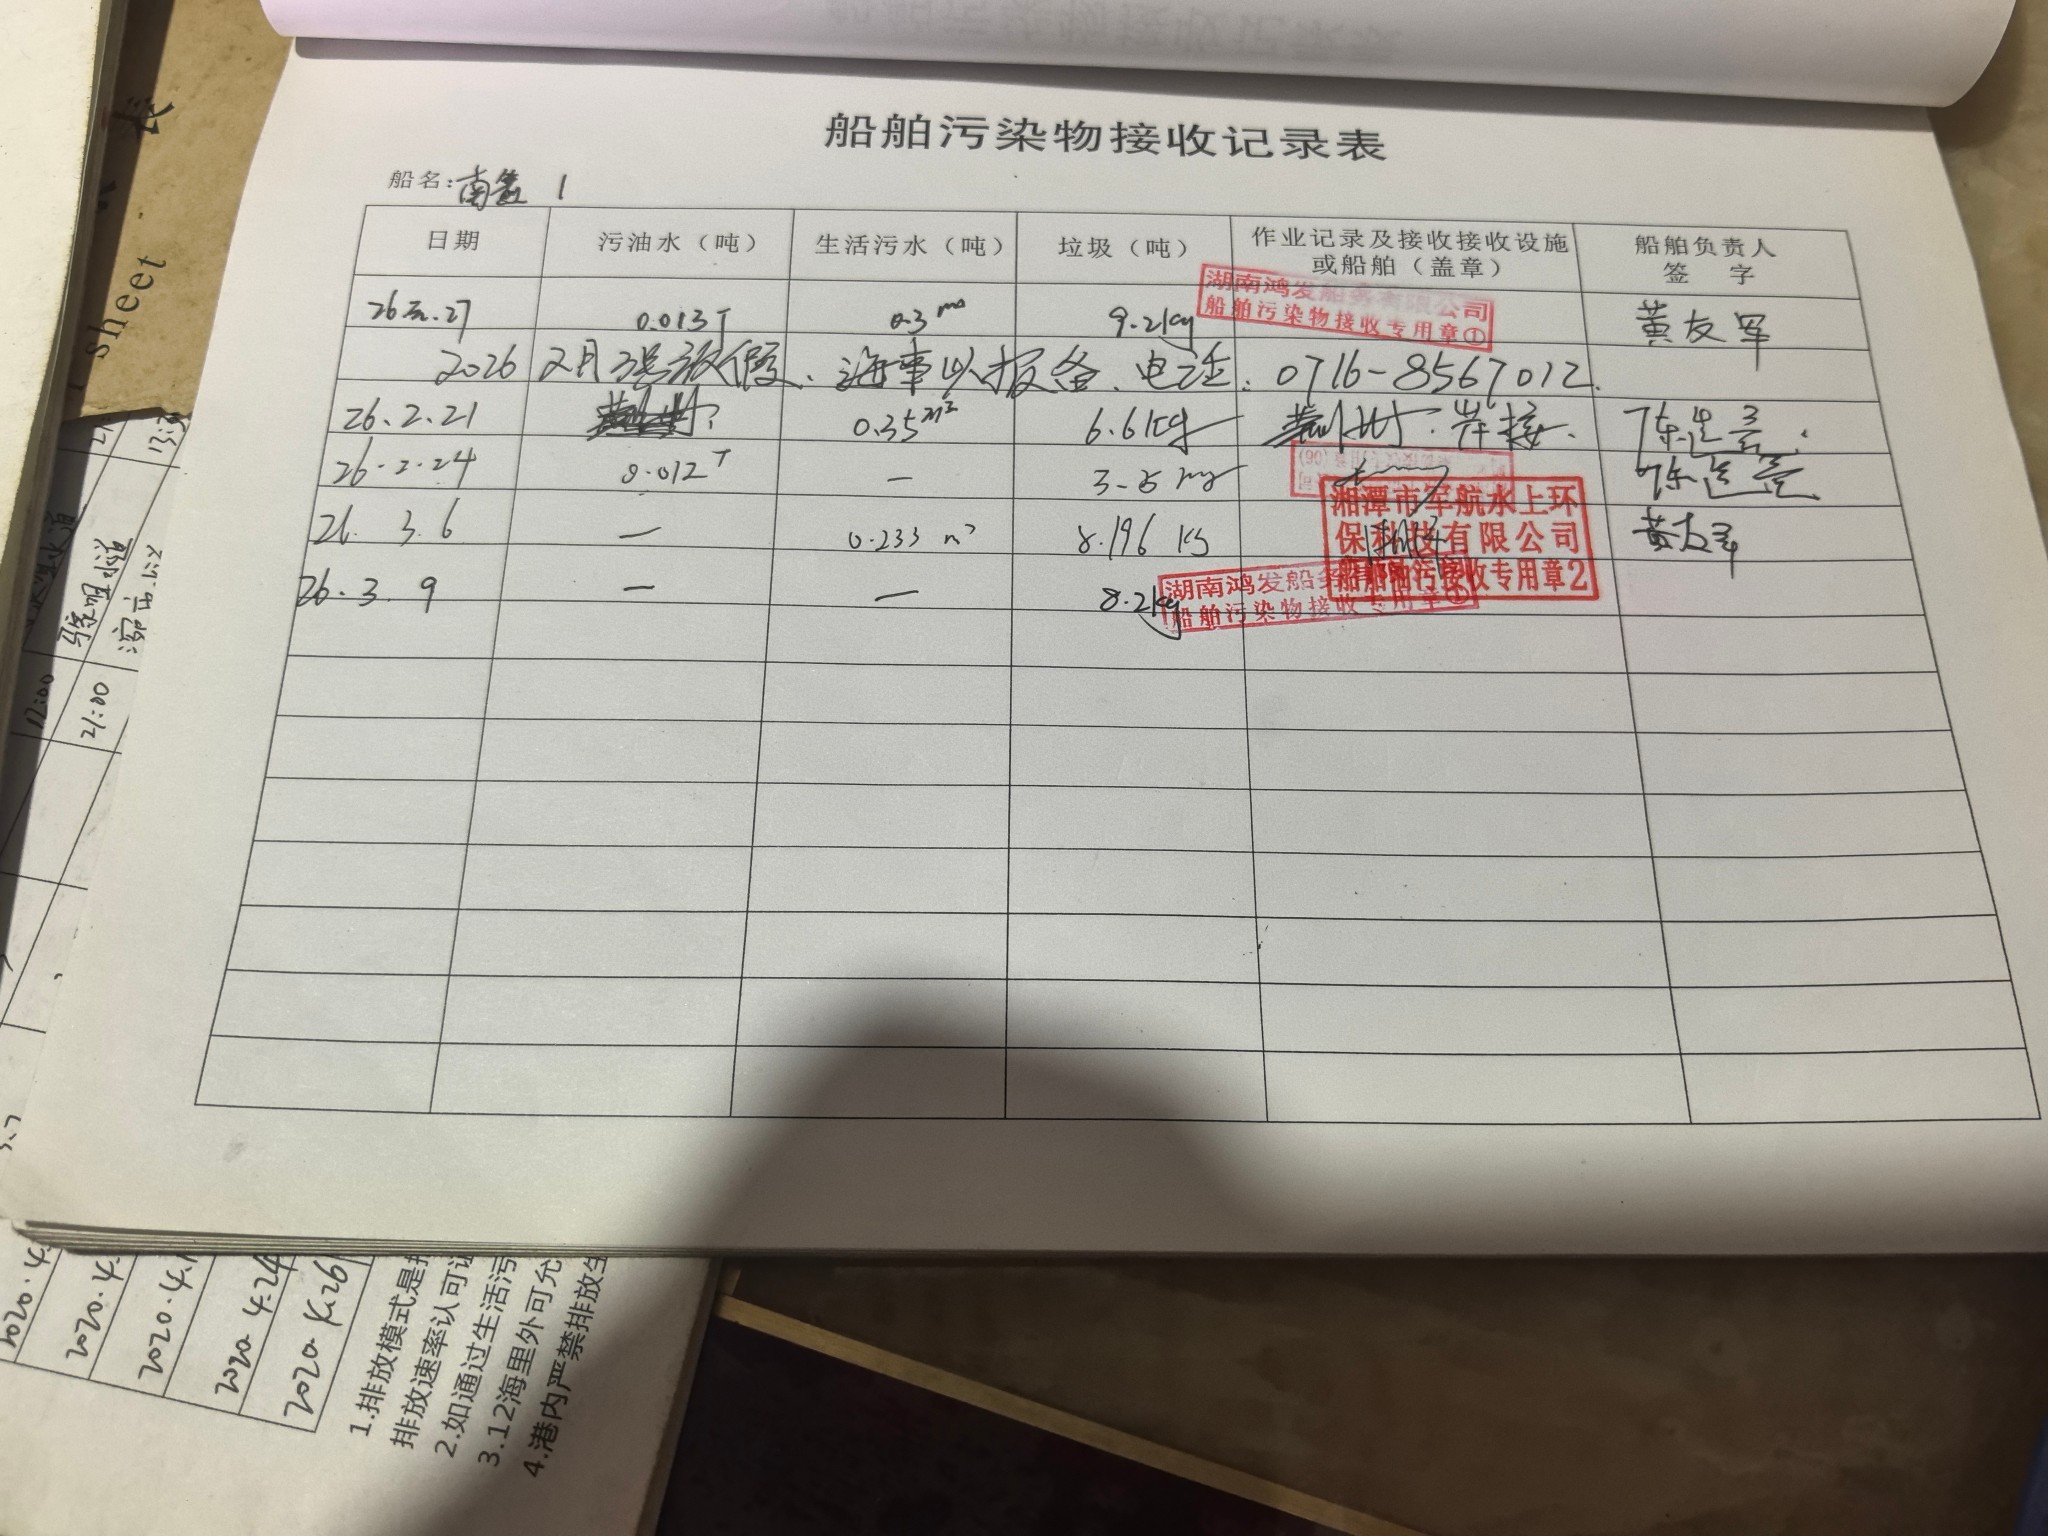 船舶污染物接收记录表
船名: 南 1
日期 污油水（吨） 生活污水（吨） 垃圾（吨） 作业记录及接收接收设施或船舶（盖章） 船舶负责人签 字
26 .27 0.013T 0.3 m³ 9.2kg 黄友军
湖南鸿发船务有限公司
船舶污染物接收专用章①
2026 2月 放假、海事以报备、电话: 0716-8567012.
26.2.21 0.35m³ 6.6kg 岸接. 陈
26.2.24 0.012T — 陈
26. 3.6 — 0.233 m³ 8.196 KG 黄友军
湘潭市军航水上环
保科技有限公司
船舶油污接收专用章2
26.3.9 — — 8.2kg
湖南鸿发船务
船舶污染物接收专用章①
sheet
表
17:00
21:00
2020.4.
2020.4.
2020.4.
2020 4.24
2020 4.26
1.排放模式是
排放速率认可证
2.如通过生活污
3.12海里外可允
4.港内严禁排放生